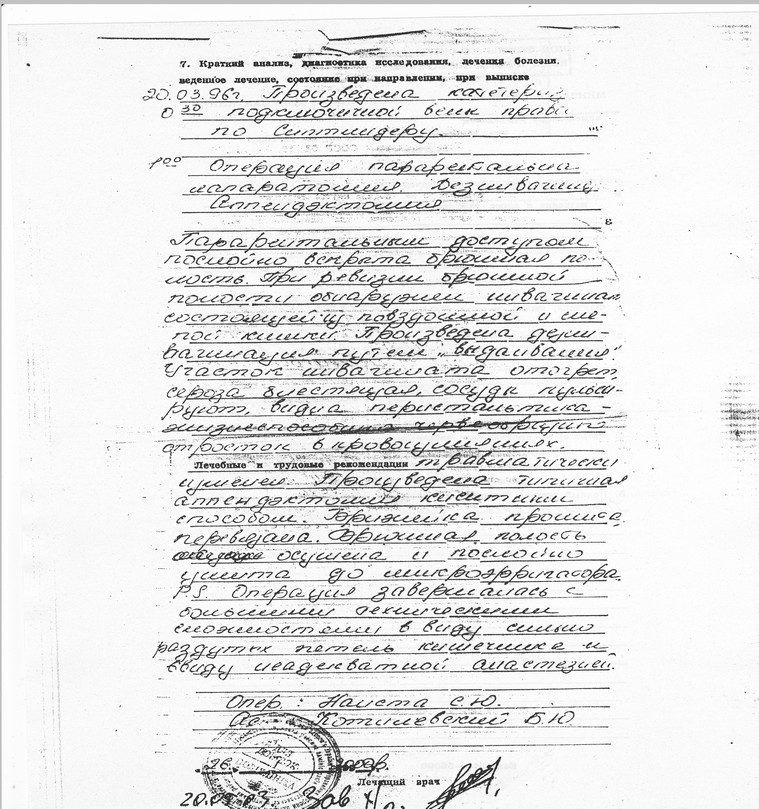 7. Краткий анализ, диагностика исследования, лечения болезни,
веденное лечение, состояние при направлении, при выписке
20.03.96г. Произведена катетериз
0 30 подключичной вены права
по Сеттльдеру.
1 00 Операция параректальна
лапаратомия. Дезинвагина
Аппендэктомия
Параректальным доступом
послойно вскрыта брюшная по-
лость. При ревизии брюшной
полости обнаружен инвагинат
состоящей из повздошной и сле-
пой кишки. Произведена дезин-
вагинация путем „выдаивания"
Участок инвагината отогрет
сероза блестящая, сосуды пульси-
руют, видна перистальтика -
жизнеспособна червеобразный
отросток в кровоизлияниях.
Лечебные и трудовые рекомендации травматически
изменен. Произведена типичная
аппендэктомия кисетным
способом. Брыжейка прошита
перевязана. Брюшная полость
осушена и послойно
ушита до микроэрригатора.
P.S. Операция завершалась с
большими техническими
сложностями в виду сильно
раздутых петель кишечника и
ввиду неадекватной анастезией.
Опер. : Наиста С.Ю.
Ас. Котилевский Б.Ю
26
Лечащий врач
20.09 Зав